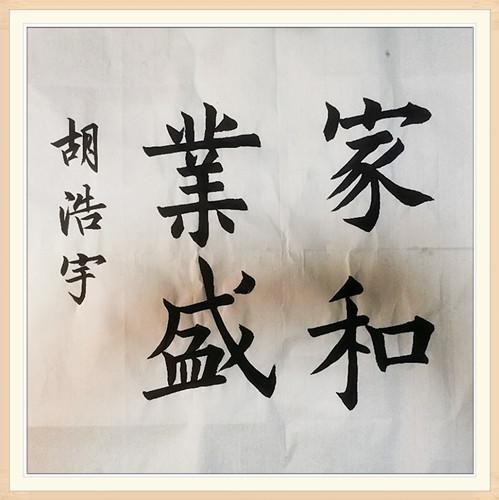 家和
業盛
胡浩宇